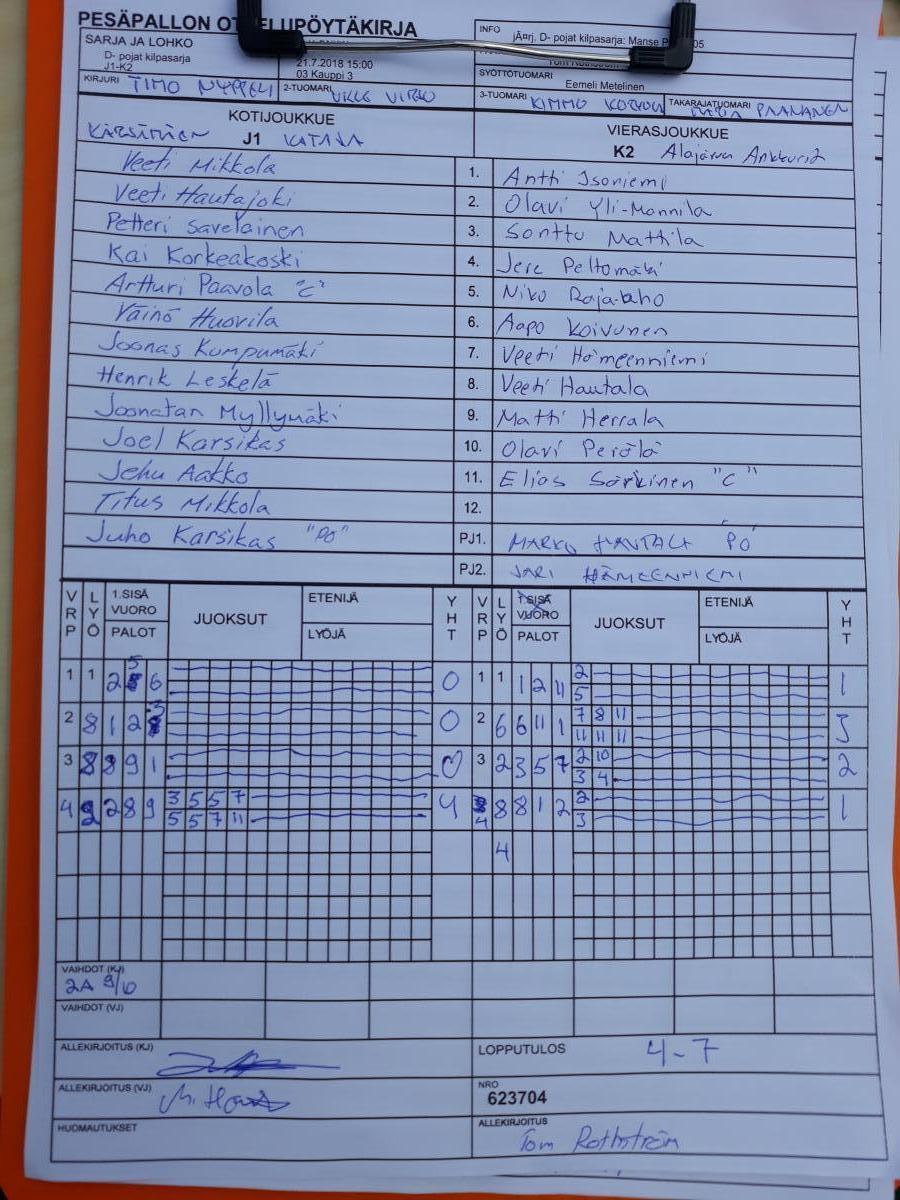 PESÄPALLON OT ELUPÖYTÄKIRJA
INFO
jÄnrj. D- pojat kilpasarja: Manse P 05
SARJA JA LOHKO
D- pojat kilpasarja
J1-K2
21.7.2018 15:00
03 Kauppi 3
SYÖTTÖTUOMARI
Eemeli Metelinen
KIRJURI TIMO NYPPELI
2-TUOMARI VILLE VIRKO
3-TUOMARI KIMMO
TAKARAJATUOMARI PAANANEN
KOTIJOUKKUE
J1 KATAJA
VIERASJOUKKUE
K2 Alajärven Ankkurit
Veeti Mikkola 1. Antti Isoniemi
Veeti Hautajoki 2. Olavi Yli-Mannila
Petteri Savelainen 3. Santtu Mattila
Kai Korkeakoski 4. Jere Peltomäki
Artturi Paavola "C" 5. Niko Rajala-aho
Väinö Huovila 6. Aapo Koivunen
Joonas Kumpumäki 7. Veeti Hämeenniemi
Henrik Leskelä 8. Veeti Hautala
Joonatan Myllymäki 9. Matti Herrala
Joel Karsikas 10. Olavi Perälä
Jehu Aakko 11. Elias Särkinen "C"
Titus Mikkola 12.
Juho Karsikas "PO" PJ1. MARKO HAUTALA PO
PJ2. JARI HÄMEENNIEMI
VRP LYÖ 1.SISÄ VUORO PALOT JUOKSUT ETENIJÄ LYÖJÄ YHT VRP LYÖ 1.SISÄ VUORO PALOT JUOKSUT ETENIJÄ LYÖJÄ YHT
1 1 2 5 6 0 1 1 1 2 11 2 1
5
2 8 1 2 3 0 2 6 6 11 1 7 8 11 3
11 11 11
3 8 8 9 1 0 3 2 3 5 7 2 10 2
3 4
4 2 2 8 9 3 5 5 7 4 4 8 8 1 2 2 1
5 5 7 11 3
4
VAIHDOT (KJ)
2A 9/10
VAIHDOT (VJ)
ALLEKIRJOITUS (KJ)
LOPPUTULOS 4-7
ALLEKIRJOITUS (VJ)
NRO
623704
HUOMAUTUKSET
ALLEKIRJOITUS
Tom Rothström